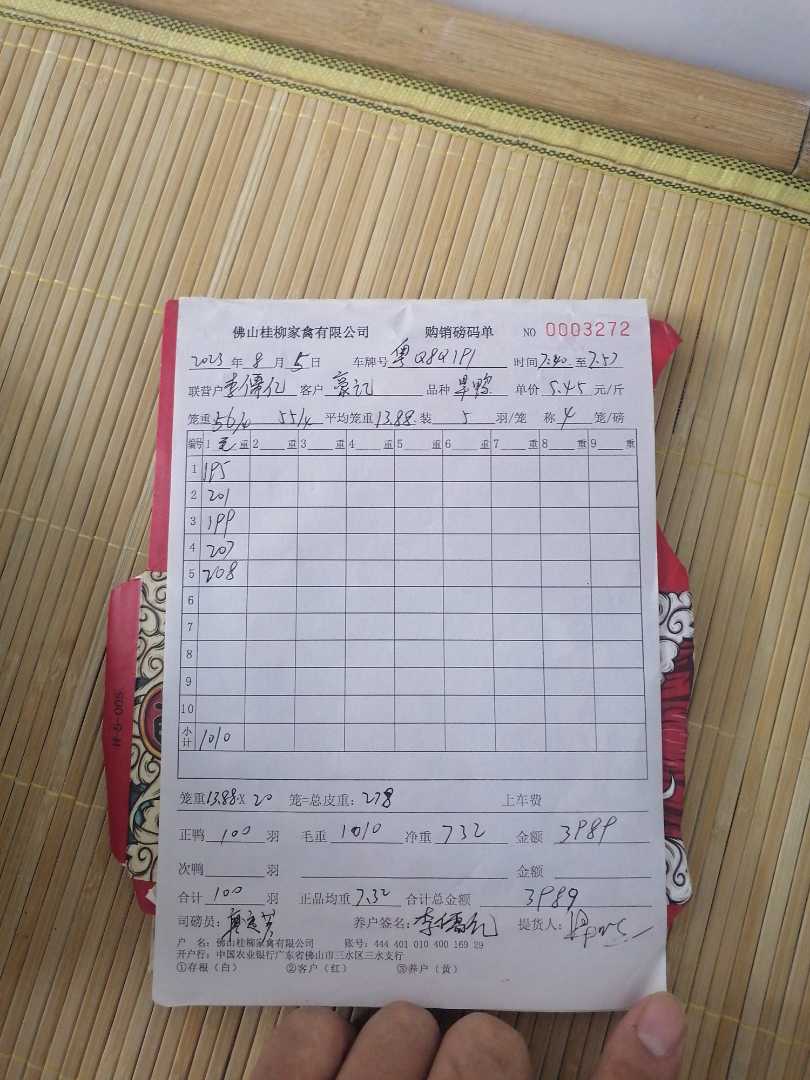 佛山桂柳家禽有限公司 购销磅码单 NO 0003272
2023年8月5日 车牌号 粤Q8Q191 时间7:40至7:57
联营户 李儒亿 客户 豪记 品种 旱鸭 单价 5.45 元/斤
笼重56/4 55/4 平均笼重13.88 装 5 羽/笼 称 4 笼/磅
编号 1 毛 重 2 重 3 重 4 重 5 重 6 重 7 重 8 重 9 重
1 195
2 201
3 199
4 207
5 208
6
7
8
9
10
小计 1010
笼重13.88 X 20 笼=总皮重:278 上车费
正鸭 100 羽 毛重 1010 净重 732 金额 3989
次鸭 羽 金额
合计 100 羽 正品均重 7.32 合计总金额 3989
司磅员: 养户签名: 李儒亿 提货人:
户 名: 佛山桂柳家禽有限公司 账号: 444 401 010 400 169 29
开户行: 中国农业银行广东省佛山市三水区三水支行
①存根(白) ②客户(红) ③养户(黄)